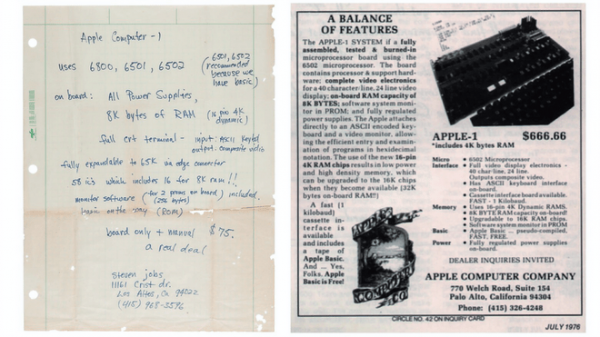 Apple Computer - 1
uses 6800, 6501, 6502
(6501, 6502
recommended
because we
have basic)
on board: All Power Supplies,
8K bytes of RAM (16 pin 4K
dynamic)
full crt terminal - input: ASCII
output: composite video
fully expandable to 65K via edge connector
58 ic's which includes 16 for 8K ram!!
monitor software (for 2 proms on board) included.
(256 bytes)
basic on the way (ROM)
board only + manual $75.
a real deal
steven jobs
11161 Crist dr.
Los Altos, Ca 94022
(415) 968-3596
A BALANCE
OF FEATURES
The APPLE-1 SYSTEM if a fully
assembled, tested & burned-in
microprocessor board using the
6502 microprocessor. The board
contains processor & support hard-
ware; complete video electronics
for a 40 character-line, 24 line video
display; on-board RAM capacity of
8K BYTES; software system moni-
tor in PROM; and fully regulated
power supplies. The Apple attaches
directly to an ASCII encoded key-
board and a video monitor, allow-
ing the efficient entry and examin-
ation of programs in hexidecimal
notation. The use of the new 16-pin
4K RAM chips results in low power
and high density memory, which
can be upgraded to the 16K chips
when they become available (32K
bytes on-board RAM!!)
A fast (1
kilobaud)
cassette in-
terface is
available
and includes
a tape of
Apple Basic.
And ... Yes,
Folks. Apple
Basic is Free!
APPLE-1 $666.66
*includes 4K bytes RAM
Micro • 6502 Microprocessor
Interface • Full video display electronics -
40 char line, 24 line.
Outputs composite video.
• Has ASCII keyboard interface
on-board.
• Cassette interface board available.
FAST - 1 Kilobaud.
Memory • Uses 16-pin 4K Dynamic RAMS.
• 8K BYTE RAM capacity on-board!
• Upgradable to 16K RAM chips.
• Software system monitor in PROM
Basic • Apple Basic ... pseudo-compiled.
FAST, FREE.
Power • Fully regulated power supplies
on-board.
DEALER INQUIRIES INVITED
APPLE COMPUTER COMPANY
770 Welch Road, Suite 154
Palo Alto, California 94304
Phone: (415) 326-4248
CIRCLE NO. 42 ON INQUIRY CARD
JULY 1976